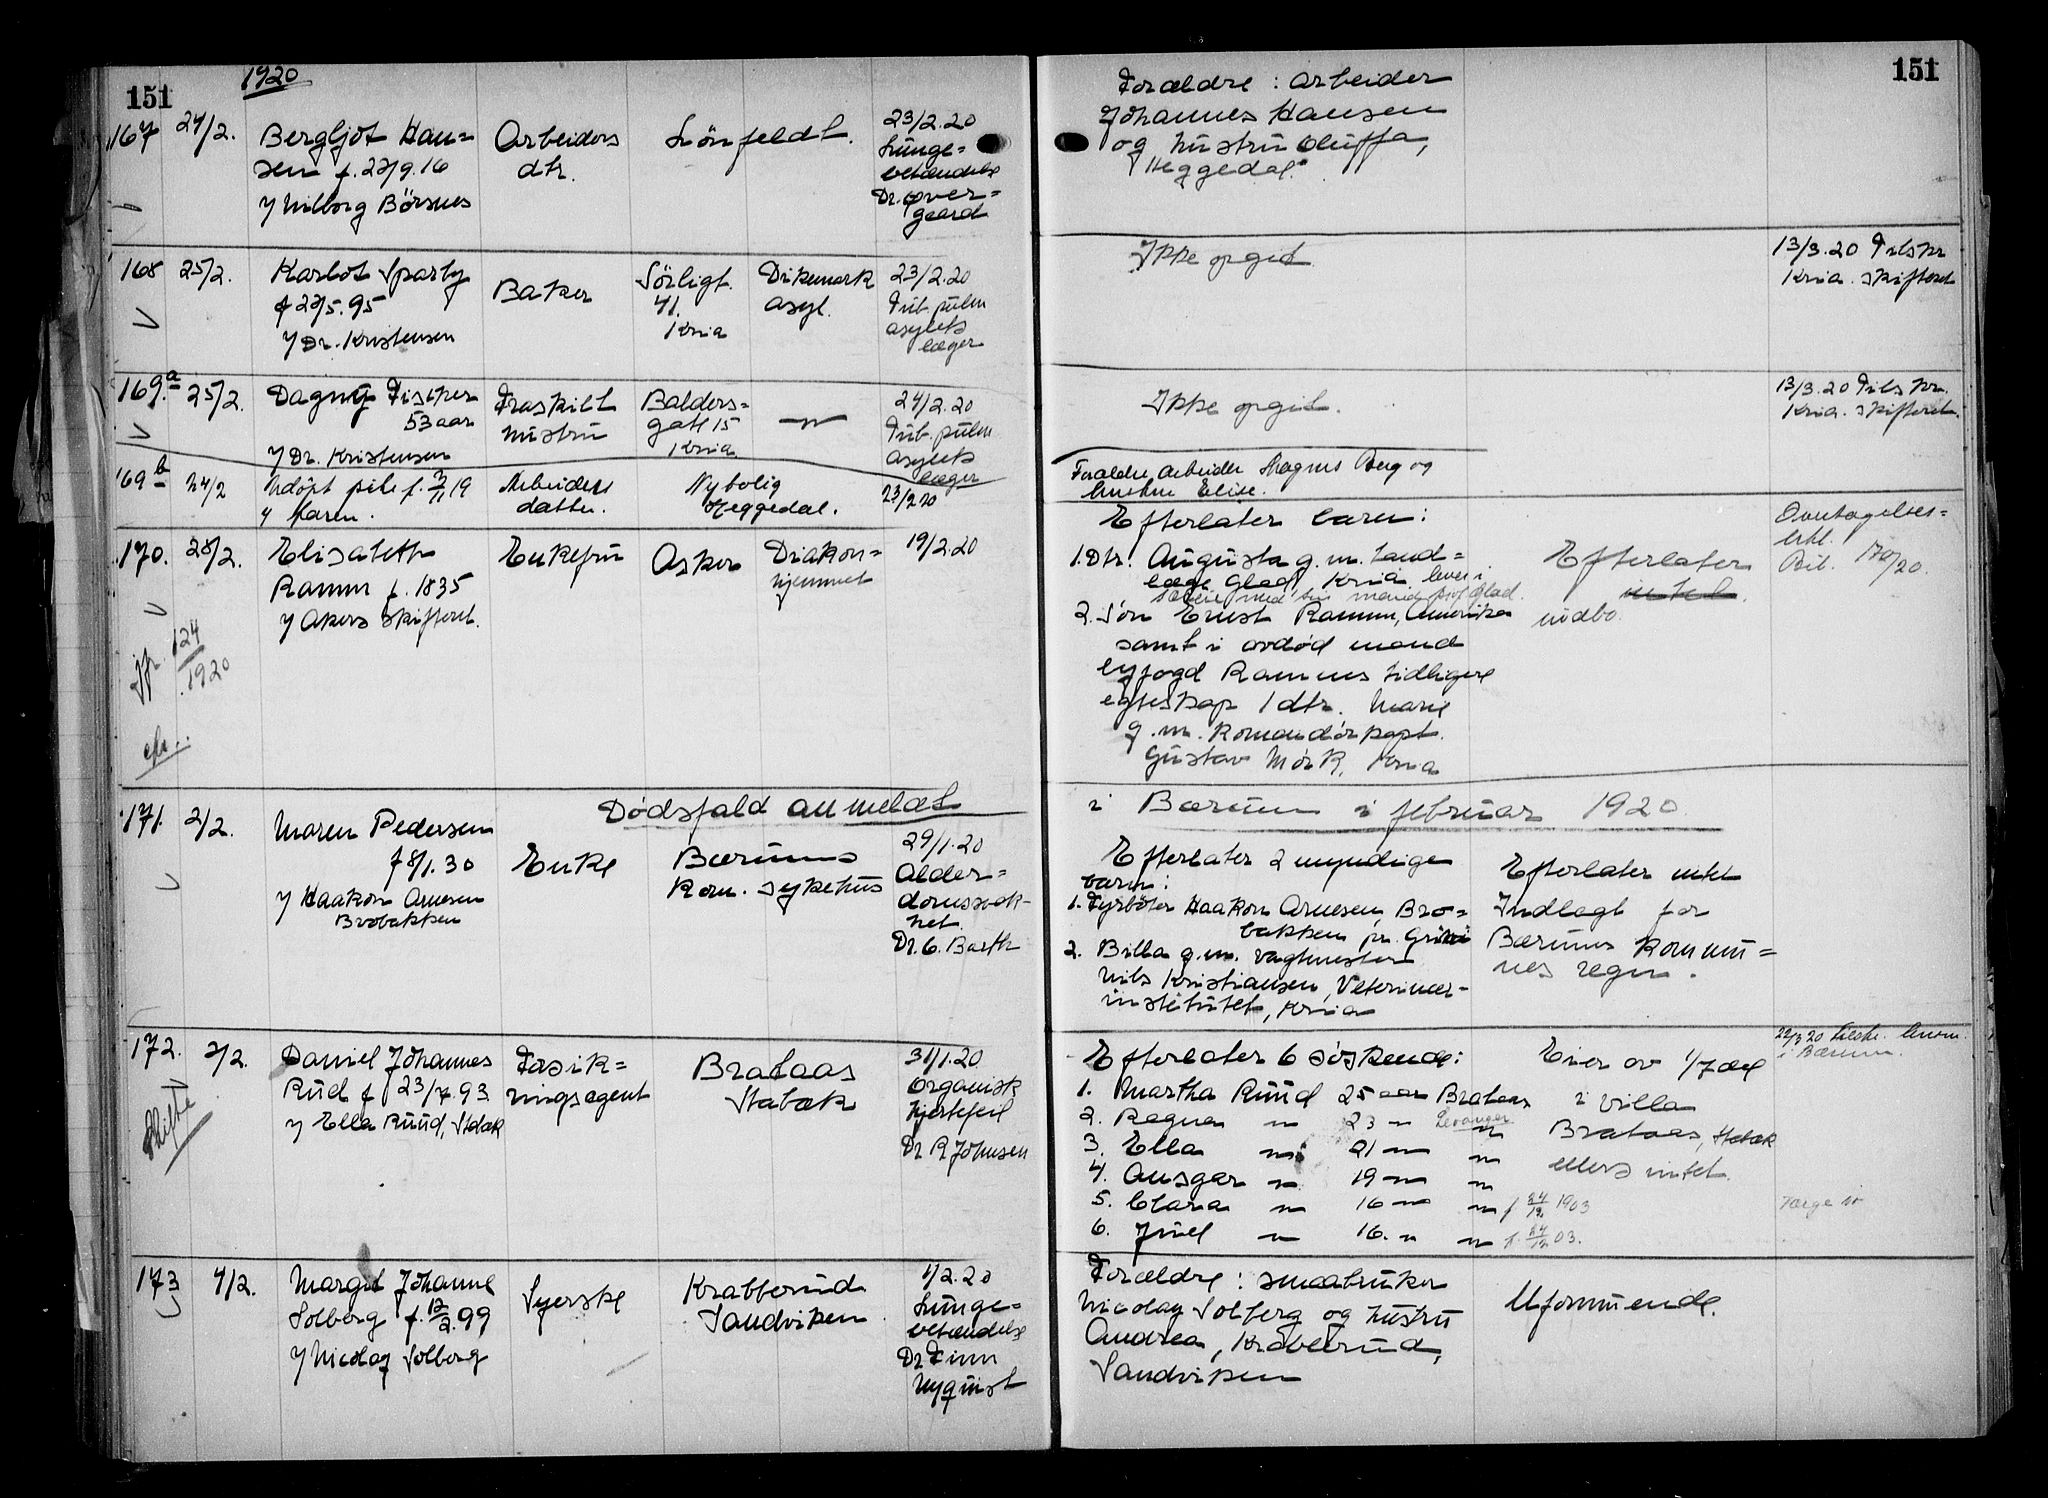 151
1920
167
24/2.
Bergljot Han=
sen f. 22/9.16
Arbeiders
dtr.
Lönfeldt.
23/2.20
Lunge=
betændelse
Dr. Over=
gaard
168
25/2.
Sparby
f 22/5.95
v/ Dr. Kristensen
Baker
Sörligt.
41.
Kria
Dikemark
asyl.
23/2.20
Tub. pulm
asylets
læger
169.a
25/2.
Dagny Fischer
53 aar
v/ Dr. Kristensen
Fraskilt
hustru
Balders=
gate 15
Kria
— " —
24/2.20
Tub. pulm
asylets
læger
169 b
24/2
Udöpt pike f. 19
v/ faren.
Arbeiders
datter.
Nybolig
Heggedal.
23/2 20
170.
28/2.
Elisabeth
Ramm f. 1835
v/ Akers skifteret.
Enkefru
Asker
Diakon=
hjemmet
19/2.20
jfr. 124
1920
171.
2/2.
Dödsfald anmeldt
Maren Pedersen
f 8/1.30
v/ Haakon Arnesen
Brobakken
Enke
Bærums
Kom. sykehus
29/1.20
Alder=
domssvak-
het.
Dr. C. Barth
172.
2/2.
Daniel Johannes
Ruud f 23/7.93
v/ Ella Ruud, Stabæk
Skifte
Fosik=
ringsagent
Brataas
Stabæk
31/1.20
Organisk
hjertefeil
Dr R Johnsen
173
4/2.
Margit Johanne
Solberg f. 12/2.99
v/ Nicolay Solberg
Syerske
Krabberud
Sandviken
1/2.20
Lunge=
betændelse
Dr Finn
Nyquist
151
Forældre : arbeider
Johannes Hansen
og hustru
Heggedal.
Ikke opgit
13/3.20 Tilskr
Kria. skifteret
Ikke opgit.
13/3.20 Tilskr.
Kria. skifteret.
Forældre arbeider Magnus Berg og
hustru Elise.
Efterlater barn:
1. Dtr. Augusta g.m. tand=
læge Glad, Kria
2. Sön Ernst Ramm, Amerika
samt i avdöd mand
byfogd Ramms tidligere
egteskap 1 dtr. Marie
g.m. Komandörkapt.
Gustav Mörk, Kria
Efterlater
intet.
uidbo.
Overtagelses=
erkl.
Bil. 170/20.
i Bærum i februar 1920
Efterlater 2 myndige
barn:
1. Fyrböter Haakon Arnesen, Bro=
bakken pr. Grini
2. Billa g.m. vagtmester
Nils Kristiansen, Veterinær-
institutet, Kria
Efterlater intet
Indlagt for
Bærums kommu=
nes regn.
Efterlater 6 söskende:
1. Martha Ruud 25 aar Brataas
2. Ragna " 23 " Levanger "
3. Ella " 21 " "
4. Ansgar " 19 " "
5. Clara " 16 " " f 24/12 1903
6. Juel " 16. " " f. 24/12 03.
Eier av 1/7 del
i villa
Brataas, Stabæk
ellers intet.
22/3 20 tilskr.
i Bærum.
Forældre : smaabruker
Nicolay Solberg og hustru
Andrea, Krabberud,
Sandviken
Uformuende.